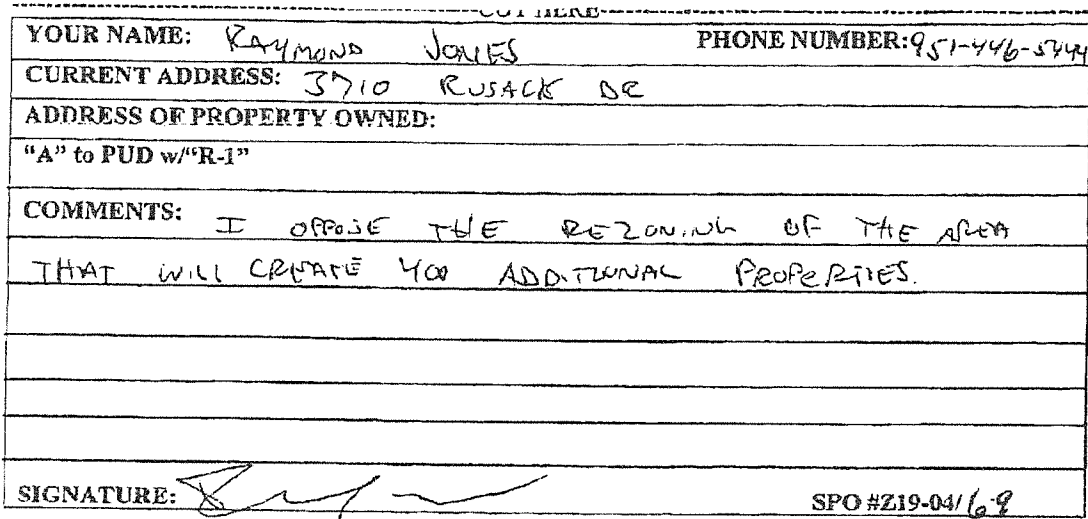 CUT HERE
YOUR NAME: RAYMOND JONES PHONE NUMBER: 951-446-5444
CURRENT ADDRESS: 3710 RUSACK DR
ADDRESS OF PROPERTY OWNED:
"A" to PUD w/"R-1"
COMMENTS: I OPPOSE THE REZONING OF THE AREA
THAT WILL CREATE 400 ADDITIONAL PROPERTIES.
SIGNATURE: SPO #Z19-04/